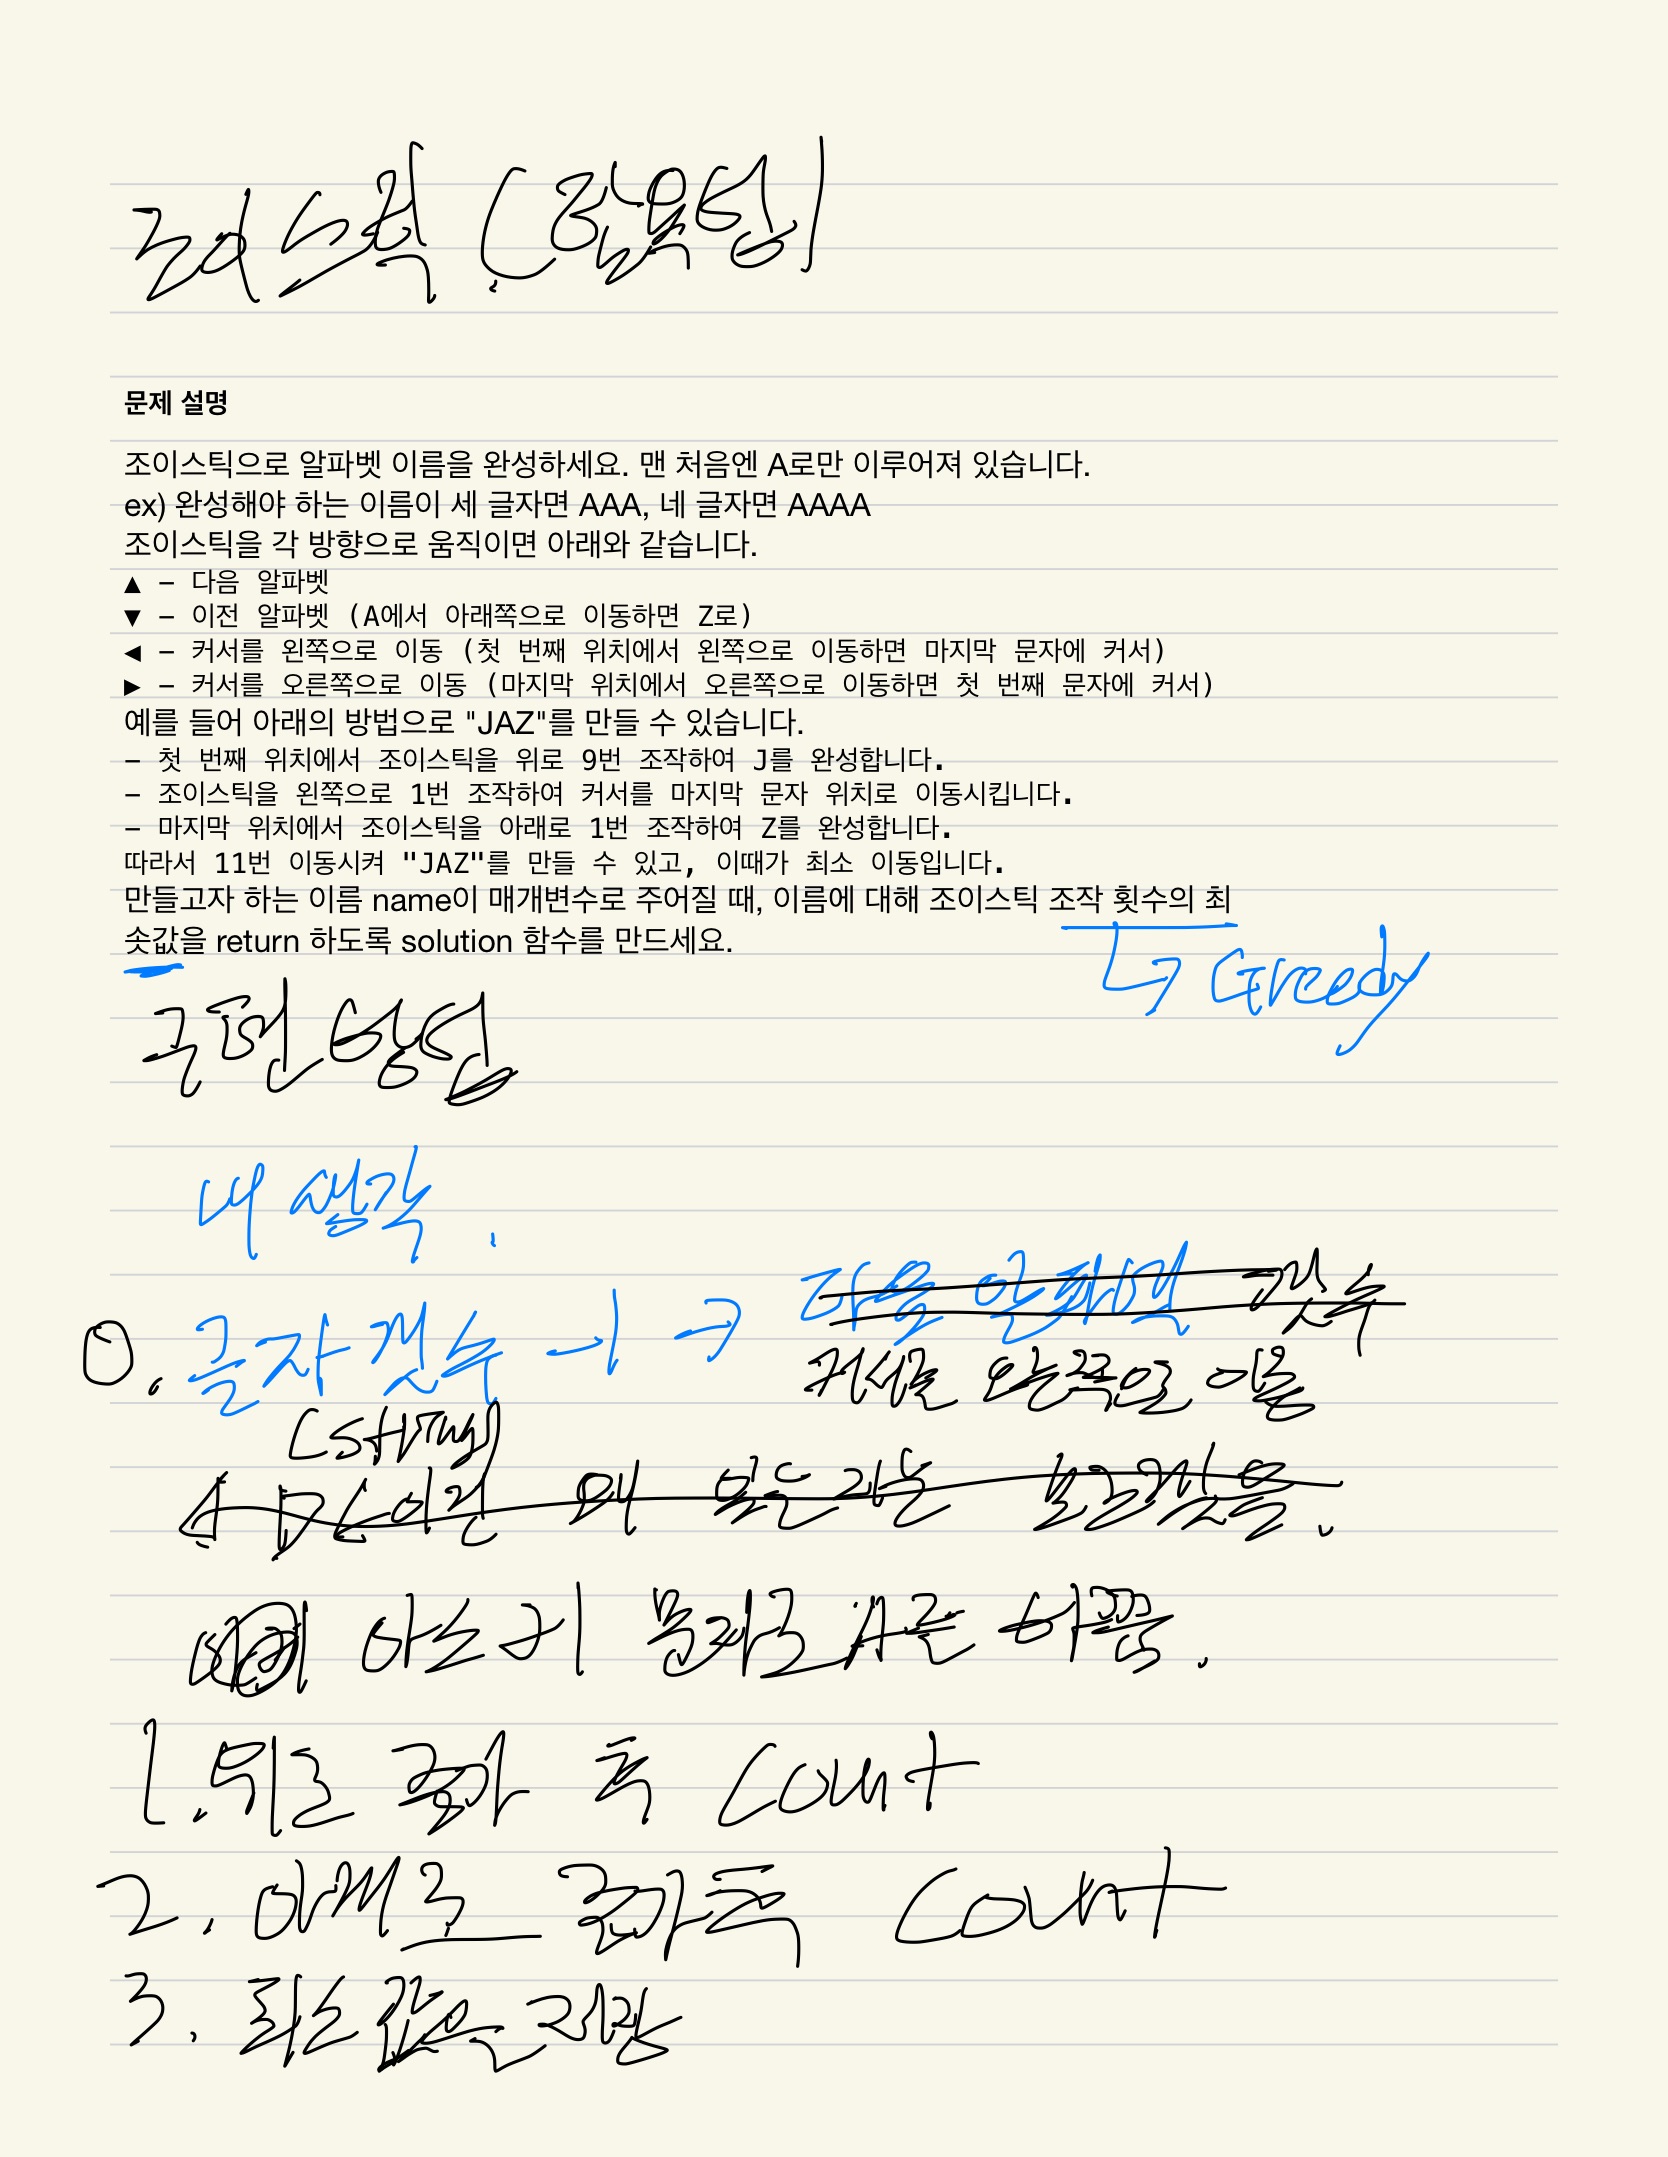 조이스틱 (
문제 설명
조이스틱으로 알파벳 이름을 완성하세요. 맨 처음엔 A로만 이루어져 있습니다.
ex) 완성해야 하는 이름이 세 글자면 AAA, 네 글자면 AAAA
조이스틱을 각 방향으로 움직이면 아래와 같습니다.
▲ - 다음 알파벳
▼ - 이전 알파벳 (A에서 아래쪽으로 이동하면 Z로)
◀ - 커서를 왼쪽으로 이동 (첫 번째 위치에서 왼쪽으로 이동하면 마지막 문자에 커서)
▶ - 커서를 오른쪽으로 이동 (마지막 위치에서 오른쪽으로 이동하면 첫 번째 문자에 커서)
예를 들어 아래의 방법으로 "JAZ"를 만들 수 있습니다.
- 첫 번째 위치에서 조이스틱을 위로 9번 조작하여 J를 완성합니다.
- 조이스틱을 왼쪽으로 1번 조작하여 커서를 마지막 문자 위치로 이동시킵니다.
- 마지막 위치에서 조이스틱을 아래로 1번 조작하여 Z를 완성합니다.
따라서 11번 이동시켜 "JAZ"를 만들 수 있고, 이때가 최소 이동입니다.
만들고자 하는 이름 name이 매개변수로 주어질 때, 이름에 대해 조이스틱 조작 횟수의 최
솟값을 return 하도록 solution 함수를 만드세요.
↳ Greedy
구현
내 생각.
0. 글자 갯수 -1 → 다음 알파벳 갯수
커서를 왼쪽으로 이동
1. 위로 count
2. 아래로 count
3. 최소값을 저장